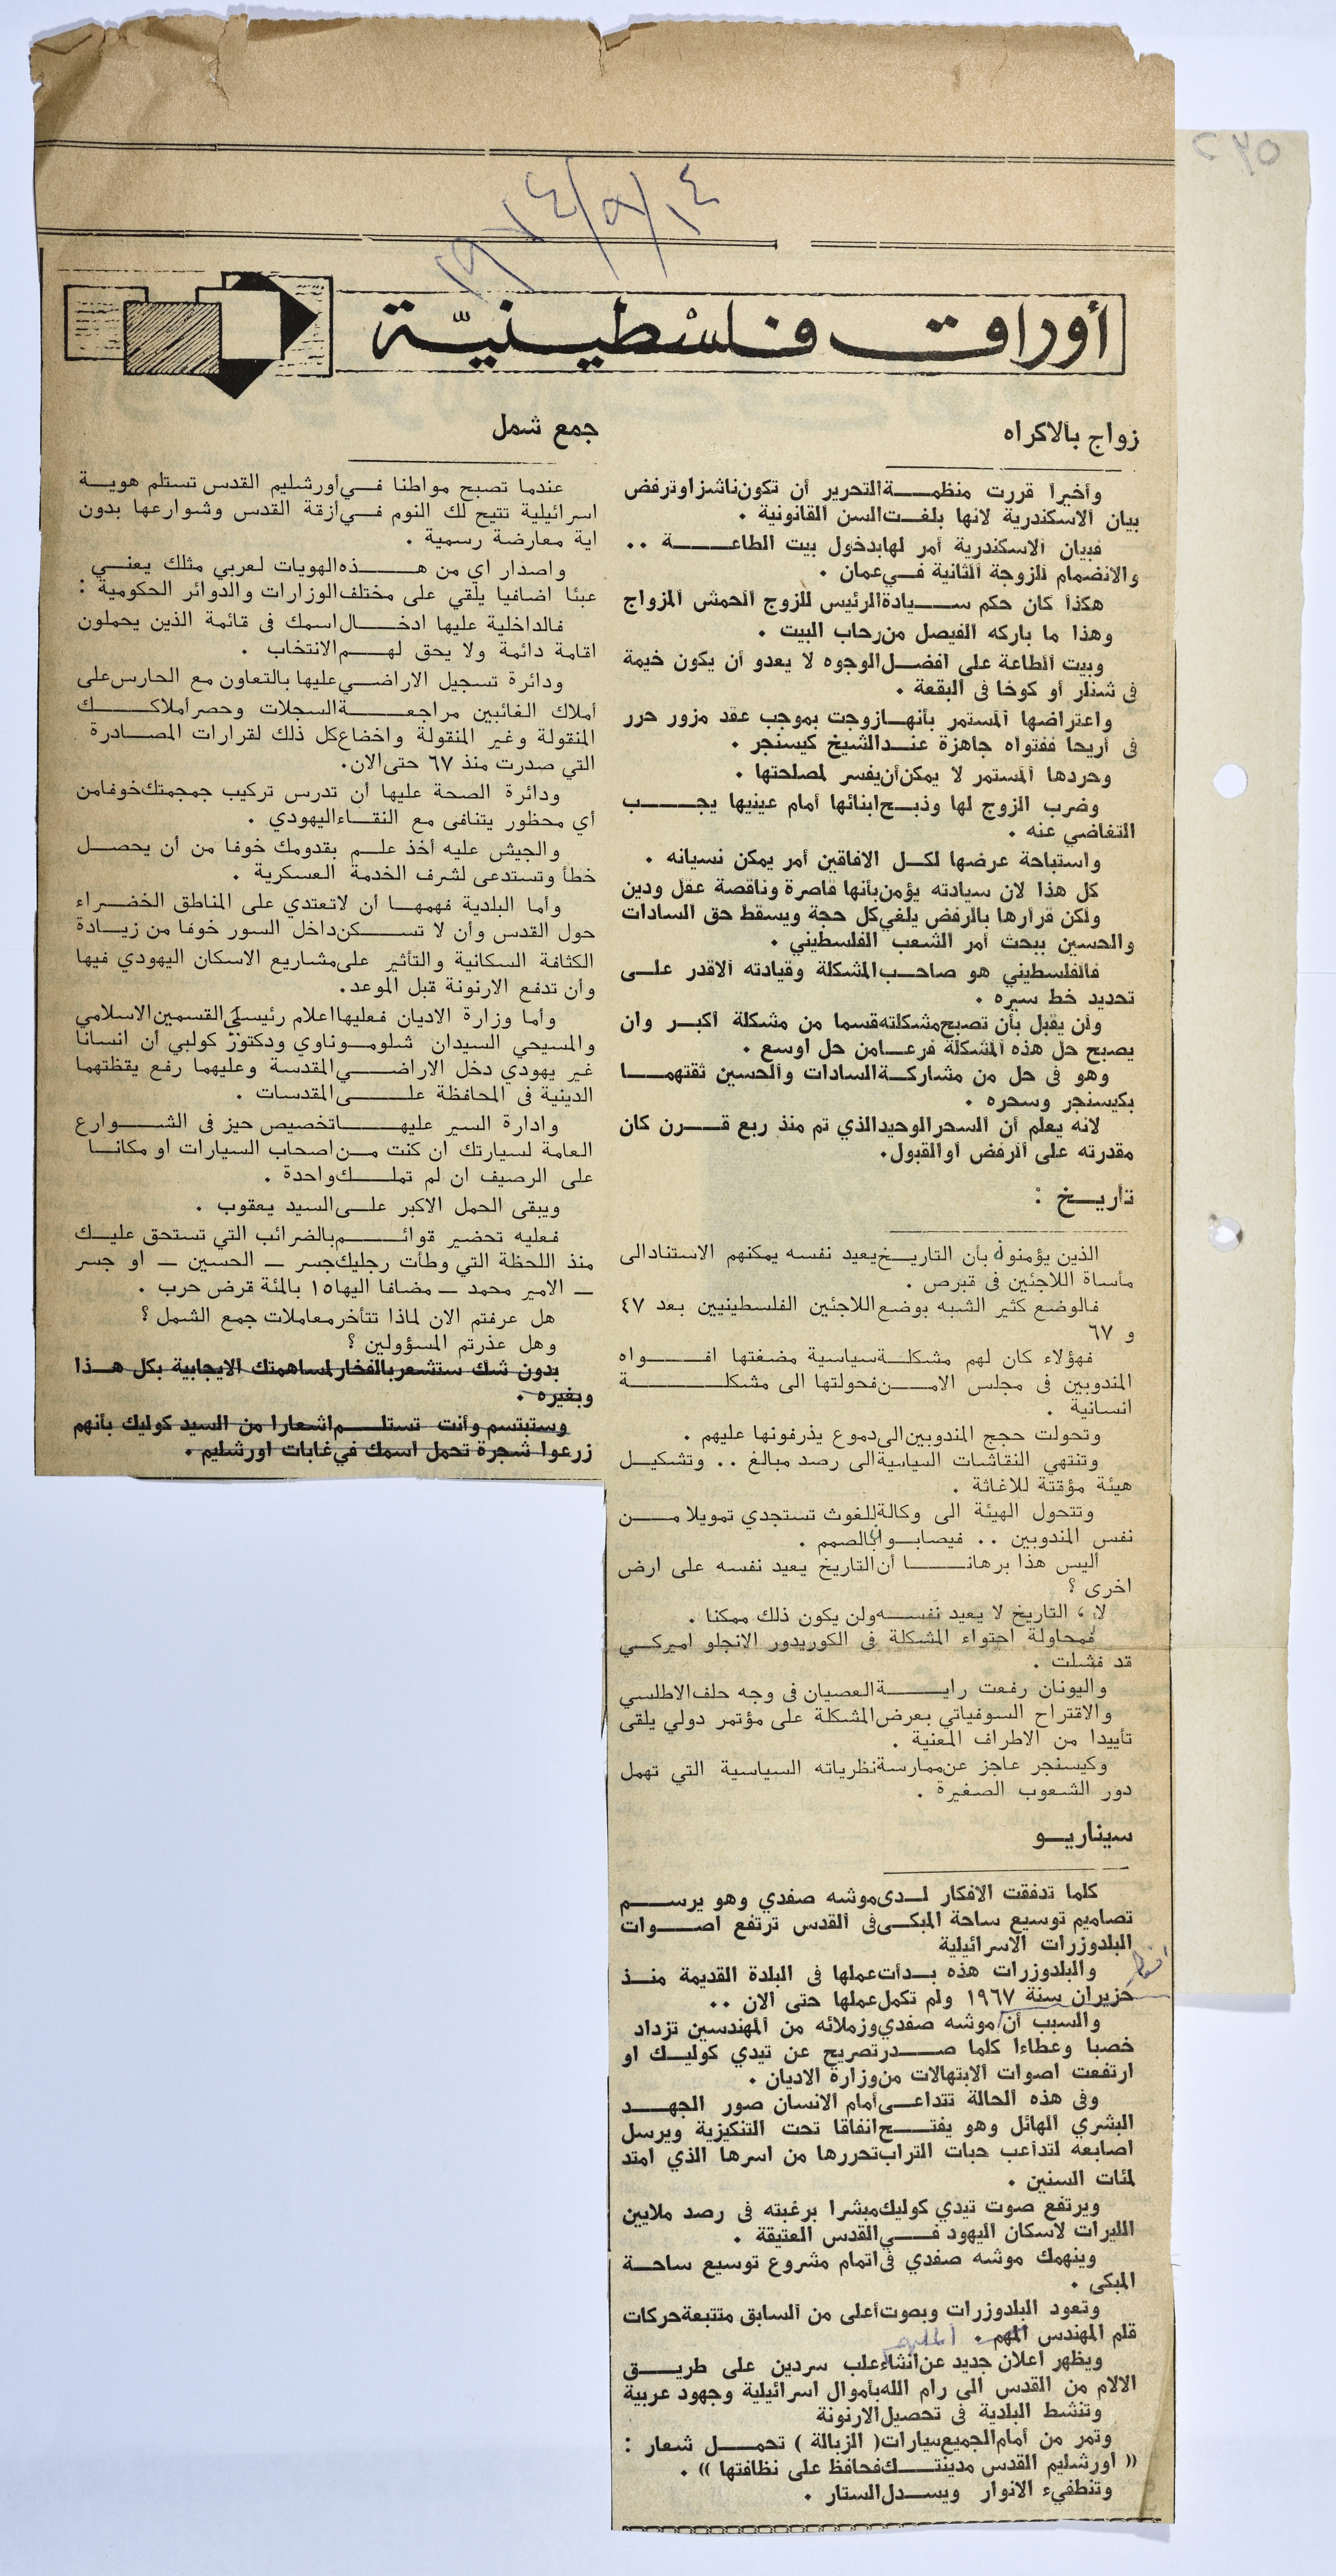 ٢٧٥
١٩٧٤/٩/١٤
أوراق فلسْطينيّة
زواج بالاكراه
وأخيرا قررت منظمة التحرير أن تكون ناشزا وترفض
بيان الاسكندرية لانها بلغت السن القانونية .
فبيان الاسكندرية أمر لها بدخول بيت الطاعة ..
والانضمام للزوجة الثانية في عمان .
هكذا كان حكم سيادة الرئيس للزوج الحمش المزواج
وهذا ما باركه الفيصل من رحاب البيت .
وبيت الطاعة على افضل الوجوه لا يعدو أن يكون خيمة
فى شنلر أو كوخا فى البقعة .
واعتراضها المستمر بأنها زوجت بموجب عقد مزور حرر
فى أريحا ففتواه جاهزة عند الشيخ كيسنجر .
وحردها المستمر لا يمكن أن يفسر لمصلحتها .
وضرب الزوج لها وذبح ابنائها أمام عينيها يجب
التغاضي عنه .
واستباحة عرضها لكل الافاقين أمر يمكن نسيانه .
كل هذا لان سيادته يؤمن بأنها قاصرة وناقصة عقل ودين
ولكن قرارها بالرفض يلغي كل حجة ويسقط حق السادات
والحسين ببحث أمر الشعب الفلسطيني .
فالفلسطيني هو صاحب المشكلة وقيادته الاقدر على
تحديد خط سيره .
ولن يقبل بأن تصبح مشكلته قسما من مشكلة أكبر وان
يصبح حل هذه المشكلة فرعا من حل اوسع .
وهو فى حل من مشاركة السادات والحسين ثقتهما
بكيسنجر وسحره .
لانه يعلم أن السحر الوحيد الذي تم منذ ربع قرن كان
مقدرته على الرفض او القبول.
تأريخ :
الذين يؤمنون بأن التاريخ يعيد نفسه يمكنهم الاستناد الى
مأساة اللاجئين فى قبرص .
فالوضع كثير الشبه بوضع اللاجئين الفلسطينيين بعد ٤٧
و ٦٧
فهؤلاء كان لهم مشكلة سياسية مضغتها افواه
المندوبين فى مجلس الامن فحولتها الى مشكلة
انسانية .
وتحولت حجج المندوبين الى دموع يذرفونها عليهم .
وتنتهي النقاشات السياسية الى رصد مبالغ .. وتشكيل
هيئة مؤقتة للاغاثة .
وتتحول الهيئة الى وكالة للغوث تستجدي تمويلا من
نفس المندوبين .. فيصابوا بالصمم .
أليس هذا برهانا أن التاريخ يعيد نفسه على ارض
اخرى ؟
لا ، التاريخ لا يعيد نفسه ولن يكون ذلك ممكنا .
فمحاولة احتواء المشكلة فى الكوريدور الانجلو اميركي
قد فشلت .
واليونان رفعت راية العصيان فى وجه حلف الاطلسي
والاقتراح السوفياتي بعرض المشكلة على مؤتمر دولي يلقى
تأييدا من الاطراف المعنية .
وكيسنجر عاجز عن ممارسة نظرياته السياسية التي تهمل
دور الشعوب الصغيرة .
سيناريو
كلما تدفقت الافكار لدى موشه صفدي وهو يرسم
تصاميم توسيع ساحة المبكى فى القدس ترتفع اصوات
البلدوزرات الاسرائيلية
والبلدوزرات هذه بدأت عملها فى البلدة القديمة منذ
حزيران سنة ١٩٦٧ ولم تكمل عملها حتى الان ..
والسبب أن موشه صفدي وزملائه من المهندسين تزداد
خصبا وعطاءا كلما صدر تصريح عن تيدي كوليك او
ارتفعت اصوات الابتهالات من وزارة الاديان .
وفى هذه الحالة تتداعى أمام الانسان صور الجهد
البشري الهائل وهو يفتح انفاقا تحت التنكيزية ويرسل
اصابعه لتداعب حبات التراب تحررها من اسرها الذي امتد
لمئات السنين .
ويرتفع صوت تيدي كوليك مبشرا برغبته فى رصد ملايين
الليرات لاسكان اليهود في القدس العتيقة .
وينهمك موشه صفدي فى اتمام مشروع توسيع ساحة
المبكى .
وتعود البلدوزرات وبصوت أعلى من السابق متتبعة حركات
قلم المهندس المهم . الملهم
ويظهر اعلان جديد عن انشاء علب سردين على طريق
الالام من القدس الى رام الله بأموال اسرائيلية وجهود عربية
وتنشط البلدية فى تحصيل الارنونة
وتمر من أمام الجميع سيارات ( الزبالة ) تحمل شعار :
(( اورشليم القدس مدينتك فحافظ على نظافتها )) .
وتنطفيء الانوار ويسدل الستار .
جمع شمل
عندما تصبح مواطنا في اورشليم القدس تستلم هوية
اسرائيلية تتيح لك النوم في ازقة القدس وشوارعها بدون
اية معارضة رسمية .
واصدار اي من هذه الهويات لعربي مثلك يعني
عبئا اضافيا يلقي على مختلف الوزارات والدوائر الحكومية :
فالداخلية عليها ادخال اسمك فى قائمة الذين يحملون
اقامة دائمة ولا يحق لهم الانتخاب .
ودائرة تسجيل الاراضي عليها بالتعاون مع الحارس على
أملاك الغائبين مراجعة السجلات وحصر أملاكك
المنقولة وغير المنقولة واخضاع كل ذلك لقرارات المصادرة
التي صدرت منذ ٦٧ حتى الان.
ودائرة الصحة عليها أن تدرس تركيب جمجمتك خوفا من
أي محظور يتنافى مع النقاء اليهودي .
والجيش عليه أخذ علم بقدومك خوفا من أن يحصل
خطأ وتستدعى لشرف الخدمة العسكرية .
وأما البلدية فهمها أن لا تعتدي على المناطق الخضراء
حول القدس وأن لا تسكن داخل السور خوفا من زيادة
الكثافة السكانية والتأثير على مشاريع الاسكان اليهودي فيها
وأن تدفع الارنونة قبل الموعد.
وأما وزارة الاديان فعليها اعلام رئيسي القسمين الاسلامي
والمسيحي السيدان شلومو ناوي ودكتور كولبي أن انسانا
غير يهودي دخل الاراضي المقدسة وعليهما رفع يقظتهما
الدينية فى المحافظة على المقدسات .
وادارة السير عليها تخصيص حيز فى الشوارع
العامة لسيارتك ان كنت من اصحاب السيارات او مكانا
على الرصيف ان لم تملك واحدة .
ويبقى الحمل الاكبر على السيد يعقوب .
فعليه تحضير قوائم بالضرائب التي تستحق عليك
منذ اللحظة التي وطأت رجليك جسر ـ الحسين ـ او جسر
ـ الامير محمد ـ مضافا اليها ١٥ بالمئة قرض حرب .
هل عرفتم الان لماذا تتأخر معاملات جمع الشمل ؟
وهل عذرتم المسؤولين ؟
بدون شك ستشعر بالفخار لمساهمتك الايجابية بكل هذا
وبغيره .
وستبتسم وأنت تستلم اشعارا من السيد كوليك بأنهم
زرعوا شجرة تحمل اسمك في غابات اورشليم .